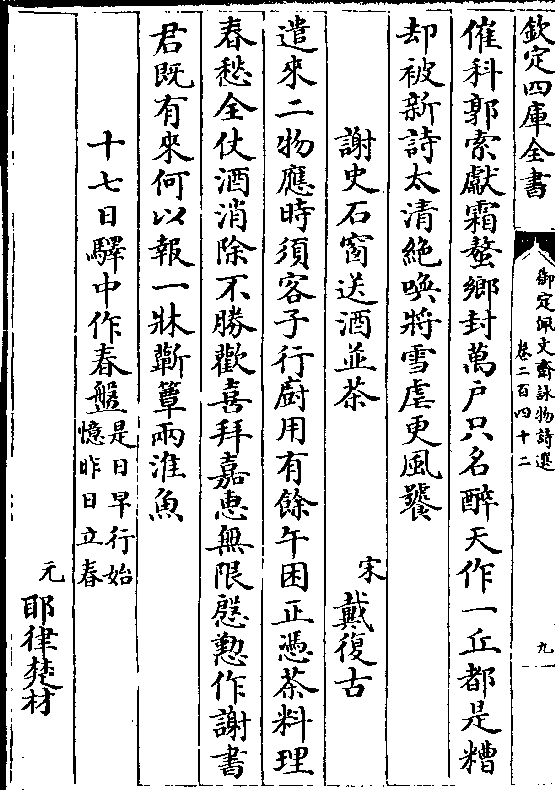 欽定四庫全書
御定佩文齋詠物詩選
卷二百四十二
九
催科郭索獻霜螯鄉封萬户只名醉天作一丘都是糟
却被新詩太清絶喚將雪虐更風饕
謝史石窗送酒並茶
宋戴復古
遣來二物應時須客子行廚用有餘午困正憑茶料理
春愁全仗酒消除不勝歡喜拜嘉惠無限慇懃作謝書
君既有來何以報一牀蘄簟兩淮魚
十七日驛中作春盤是日早行始
憶昨日立春
元耶律楚材